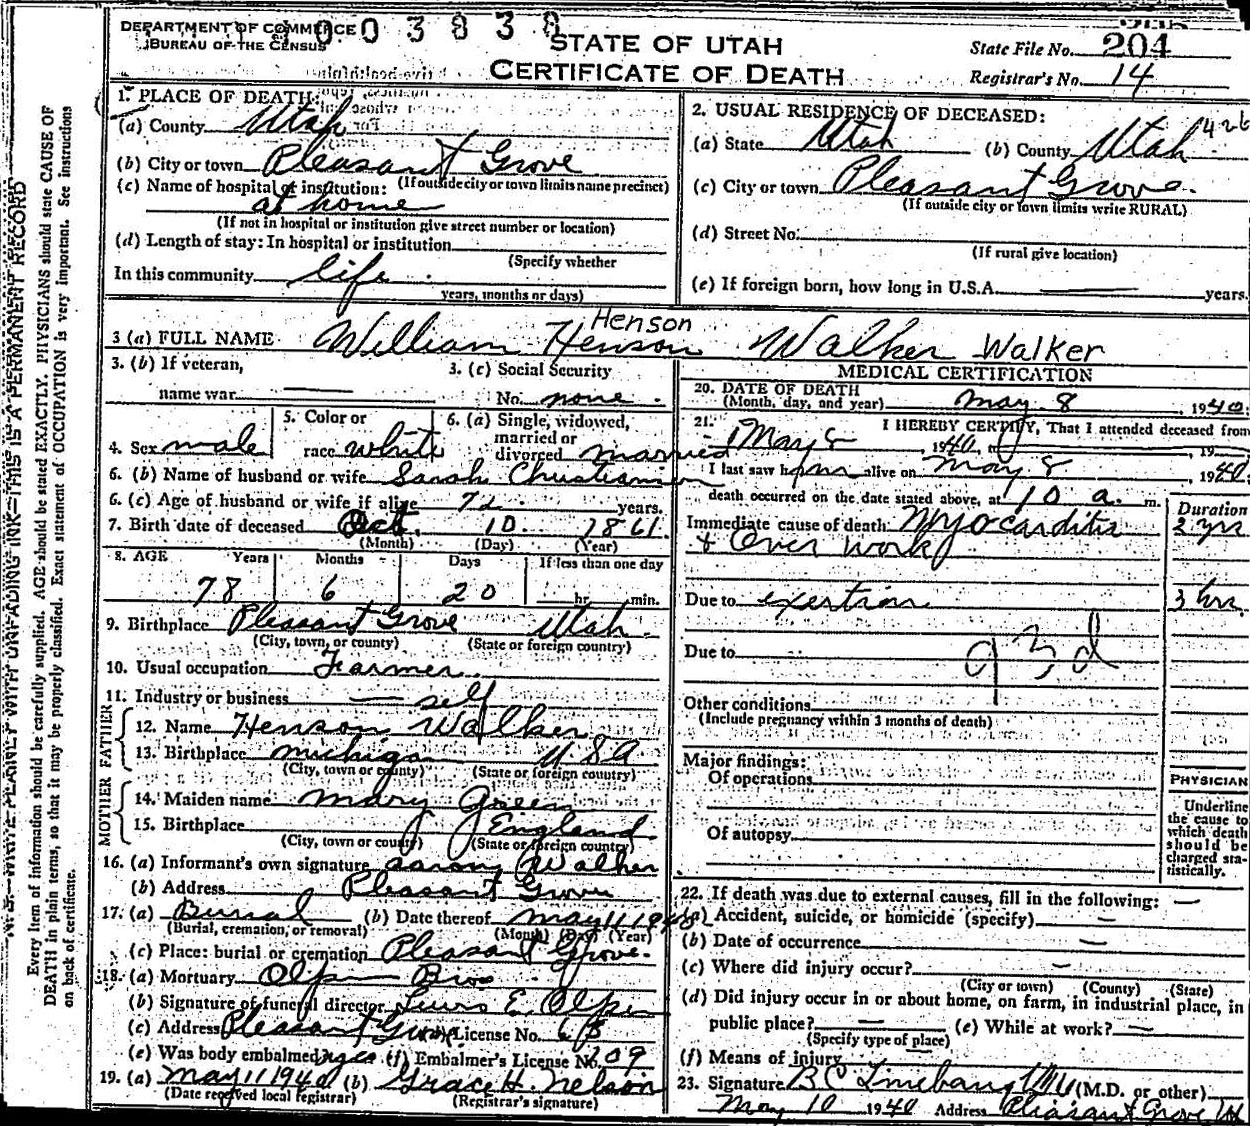 DEPARTMENT OF COMMERCE
BUREAU OF THE CENSUS
003838
STATE OF UTAH
CERTIFICATE OF DEATH
State File No. 204
Registrar's No. 14
N. B.—WRITE PLAINLY WITH UNFADING INK—THIS IS A PERMANENT RECORD
Every item of information should be carefully supplied. AGE should be stated EXACTLY. PHYSICIANS should state CAUSE OF
DEATH in plain terms, so that it may be properly classified. Exact statement of OCCUPATION is very important. See instructions
on back of certificate.
1. PLACE OF DEATH:
(a) County Utah
(b) City or town Pleasant Grove
(If outside city or town limits name precinct)
(c) Name of hospital or institution:
at home
(If not in hospital or institution give street number or location)
(d) Length of stay: In hospital or institution
(Specify whether
In this community life
years, months or days)
2. USUAL RESIDENCE OF DECEASED:
426
(a) State Utah (b) County Utah
(c) City or town Pleasant Grove.
(If outside city or town limits write RURAL)
(d) Street No.
(If rural give location)
(e) If foreign born, how long in U.S.A. years.
Henson
3 (a) FULL NAME William Henson Walker Walker
3. (b) If veteran,
name war
3. (c) Social Security
No. none
4. Sex male
5. Color or
race white
6. (a) Single, widowed,
married or
divorced married
6. (b) Name of husband or wife Sarah
6. (c) Age of husband or wife if alive 72 years.
7. Birth date of deceased Oct. 10 1861
(Month) (Day) (Year)
8. AGE Years Months Days If less than one day
78 6 20 hr. min.
9. Birthplace Pleasant Grove Utah
(City, town, or county) (State or foreign country)
10. Usual occupation Farmer
11. Industry or business self
FATHER
12. Name Henson Walker
13. Birthplace Michigan USA
(City, town or county) (State or foreign country)
MOTHER
14. Maiden name Mary Green
15. Birthplace England
(City, town or county) (State or foreign country)
16. (a) Informant's own signature Aaron Walker
(b) Address Pleasant Grove
17. (a) Burial (b) Date thereof May 11 1940
(Burial, cremation, or removal) (Month) (Day) (Year)
(c) Place: burial or cremation Pleasant Grove.
18. (a) Mortuary Olpin Bros
(b) Signature of funeral director Lewis E. Olpin
(c) Address Pleasant Grove License No.
(e) Was body embalmed yes (f) Embalmer's License No. 209
19. (a) May 11 1940 (b) Grace H. Nelson
(Date received local registrar) (Registrar's signature)
MEDICAL CERTIFICATION
20. DATE OF DEATH
(Month, day, and year) May 8, 1940
21. I HEREBY CERTIFY, That I attended deceased from
May 8, 1940, 19
I last saw him alive on May 8, 1940
death occurred on the date stated above, at 10 a. m.
Duration
Immediate cause of death Myocarditis 2 yrs
& Over work
Due to exertion 3 hrs.
Due to 93d
Other conditions
(Include pregnancy within 3 months of death)
Major findings:
Of operations
Of autopsy
PHYSICIAN
Underline
the cause to
which death
should be
charged sta-
tistically.
22. If death was due to external causes, fill in the following: —
(a) Accident, suicide, or homicide (specify) —
(b) Date of occurrence —
(c) Where did injury occur? —
(City or town) (County) (State)
(d) Did injury occur in or about home, on farm, in industrial place, in
public place? — (e) While at work? —
(Specify type of place)
(f) Means of injury
23. Signature B C Linebaugh MD (M.D. or other)
May 10 1940 Address Pleasant Grove Ut